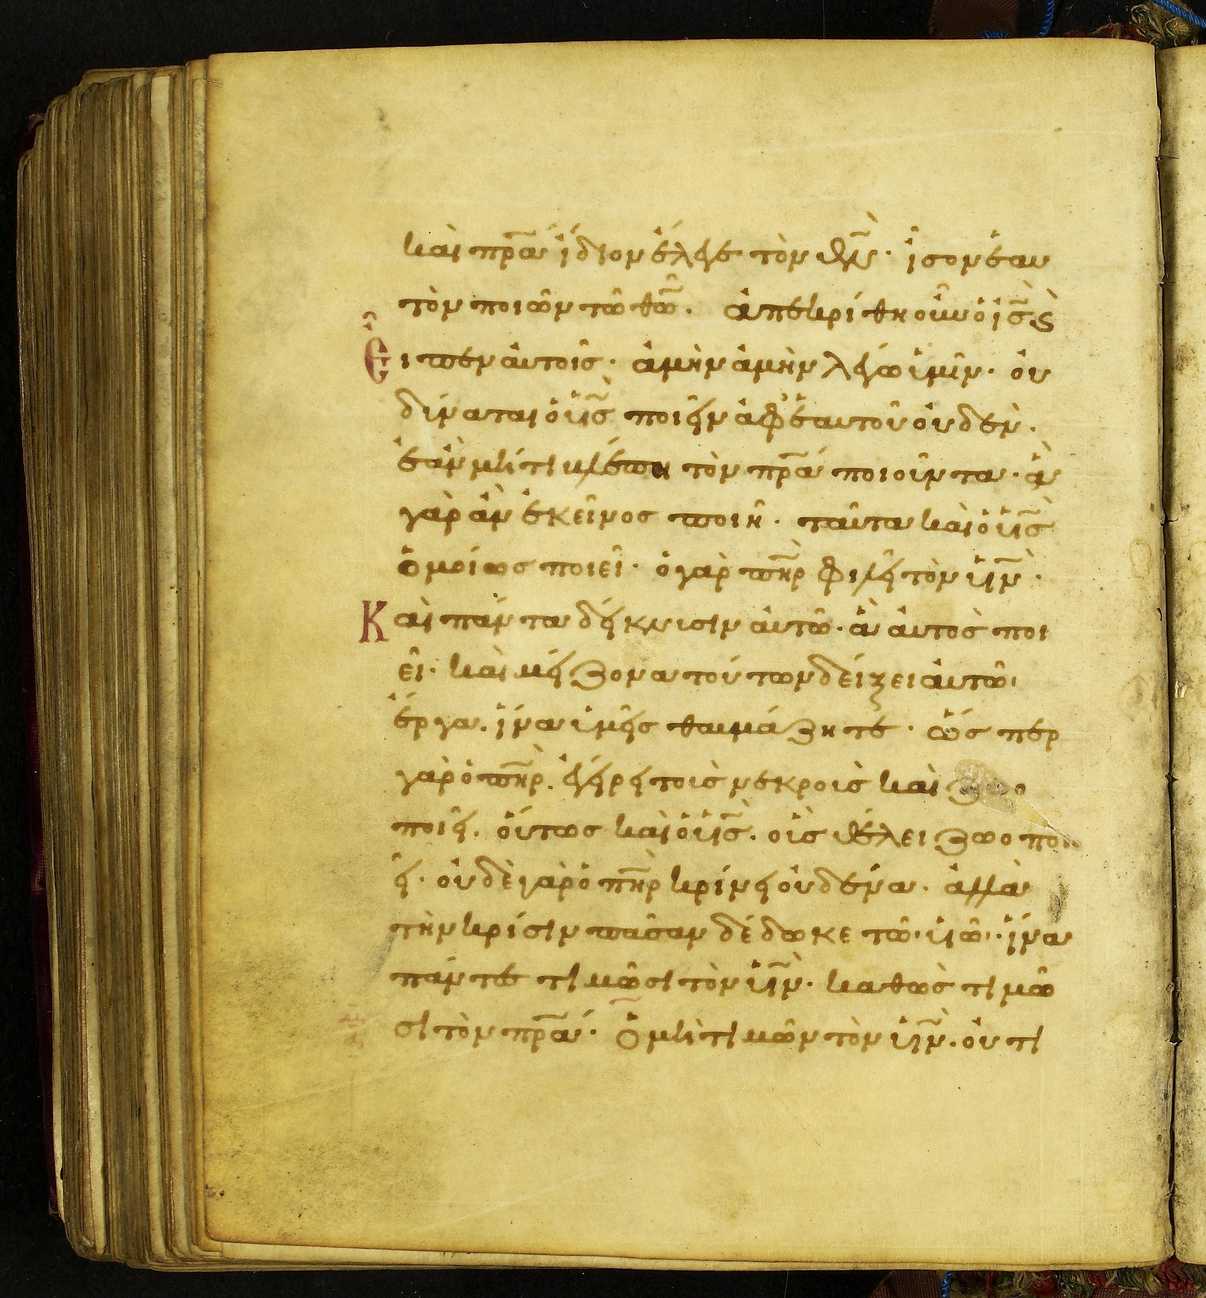 καὶ πρ̅α ἴδιον ἔλεγε τὸν θν̅· ἴσον ἑαυ
τὸν ποιῶν τῶ θω̅. ἀπεκρίθη οὖν ὁ ισ̅ κ̀
Εἶπεν αὐτοῖς· ἀμὴν ἀμὴν λέγω ὑμῖν· οὐ
δύναται ὁ υἱσ̅ ποιεῖν ἀφ' ἑαυτοῦ οὐδὲν.
ἐὰν μή τι βλέπη τὸν πρ̅α ποιοῦντα· ἃ
γὰρ ἂν ἐκεῖνος ποιῆ· ταῦτα καὶ ὁ υἱσ̅
ὁμοίως ποιεῖ· ὁ γὰρ πη̅ρ φιλεῖ τὸν υἱν̅·
Καὶ πάντα δείκνυσιν αὐτῶ· ἃ αὐτὸς ποι
εῖ· καὶ μείζονα τούτων δείξει αὐτῶ·
ἔργα. ἵνα ὑμεῖς θαυμάζητε· ὥσπερ
γὰρ ὁ πη̅ρ. ἐγείρει τοὺς νεκροὺς καὶ ζωο
ποιεῖ. οὕτως καὶ ὁ υἱσ̅. οὓς θέλει ζωοποι
εῖ· οὐδὲ γὰρ ὁ πη̅ρ κρίνει οὐδένα. ἀλλὰ
τὴν κρίσιν πᾶσαν δέδωκε τῶ υἱῶ· ἵνα
πάντες τιμῶσι τὸν υἱν̅· καθὼς τιμῶ
σι τὸν πρ̅α· Ὁ μὴ τιμῶν τὸν υἱν̅. οὐ τι